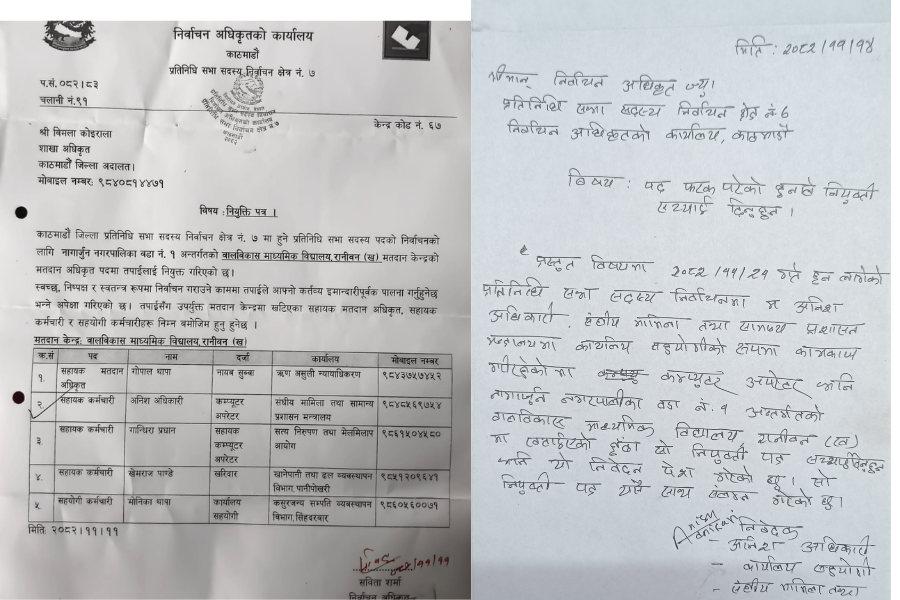 निर्वाचन अधिकृतको कार्यालय
काठमाडौं
प्रतिनिधि सभा सदस्य निर्वाचन क्षेत्र नं. ७
प.सं. ०८२।८३
चलानी नं.९१
केन्द्र कोड नं. ६७
श्री बिमला कोइराला
शाखा अधिकृत
काठमाडौं जिल्ला अदालत।
मोबाइल नम्बर: ९८४०८१४४७१
विषय : नियुक्ति पत्र ।
काठमाडौं जिल्ला प्रतिनिधि सभा सदस्य निर्वाचन क्षेत्र नं. ७ मा हुने प्रतिनिधि सभा सदस्य पदको निर्वाचनको
लागि नागार्जुन नगरपालिका वडा नं. १ अन्तर्गतको बालविकास माध्यमिक विद्यालय,रानीवन (ख) मतदान केन्द्रको
मतदान अधिकृत पदमा तपाईलाई नियुक्त गरिएको छ।
स्वच्छ, निष्पक्ष र स्वतन्त्र रूपमा निर्वाचन गराउने काममा तपाईंले आफ्नो कर्तव्य इमान्दारीपूर्वक पालना गर्नुहुनेछ
भन्ने अपेक्षा गरिएको छ। तपाईसँग उपर्युक्त मतदान केन्द्रमा खटिएका सहायक मतदान अधिकृत, सहायक
कर्मचारी र सहयोगी कर्मचारीहरू निम्न बमोजिम हुनु हुनेछ ।
मतदान केन्द्र: बालविकास माध्यमिक विद्यालय,रानीवन (ख)
क्र.सं पद नाम दर्जा कार्यालय मोबाइल नम्बर
१. सहायक मतदान अधिकृत गोपाल थापा नायब सुब्बा ऋण असुली न्यायाधिकरण ९८४३७५७४५२
२. सहायक कर्मचारी अनिश अधिकारी कम्प्यूटर अपरेटर संघीय मामिला तथा सामान्य प्रशासन मन्त्रालय ९८४८५६९७५४
३. सहायक कर्मचारी गान्धिरा प्रधान सहायक कम्प्यूटर अपरेटर सत्य निरुपण तथा मेलमिलाप आयोग ९८६१५०४५८०
४. सहायक कर्मचारी खेमराज पाण्डे खरिदार खानेपानी तथा ढल व्यवस्थापन विभाग,पानीपोखरी ९८५१२०९६४१
५. सहयोगी कर्मचारी मोनिका थापा कार्यालय सहयोगी कसुरजन्य सम्पति व्यवस्थापन विभाग,सिंहदरबार ९८६०५६००७१
मिति: २०८२।११।११
सविता शर्मा
निर्वाचन अधिकृत
मिति : २०८२/११/१४
श्रीमान् निर्वाचन अधिकृत ज्यू।
प्रतिनिधि सभा सदस्य निर्वाचन क्षेत्र नं ७
निर्वाचन अधिकृतको कार्यालय, काठमाडौं
विषय : पद फरक परेको हुनाले नियुक्ती
सच्याई दिनुहुन ।
प्रस्तुत विषयमा २०८२/११/२१ गते हुन लागेको
प्रतिनिधि सभा सदस्य निर्वाचनमा म अनिश
अधिकारी, संघीय मामिला तथा सामान्य प्रशासन
मन्त्रालयमा कार्यालय सहयोगीको रुपमा कामकाज
गरिरहेकोमा कम्प्युटर अपरेटर भनि
नागार्जुन नगरपालिका वडा नं. १ अन्तर्गतको
बालविकास माध्यमिक विद्यालय रानीवन (ख)
मा खटाईएको हुँदा सो नियुक्ती पत्र सच्याईदिनुहुन
भनि यो निवेदन पेश गरेको छु। सो
नियुक्ती पत्र यसै साथ संलग्न गरेको छु।
निवेदक
- अनिश अधिकारी
- कार्यालय सहयोगी
- संघीय मामिला तथा